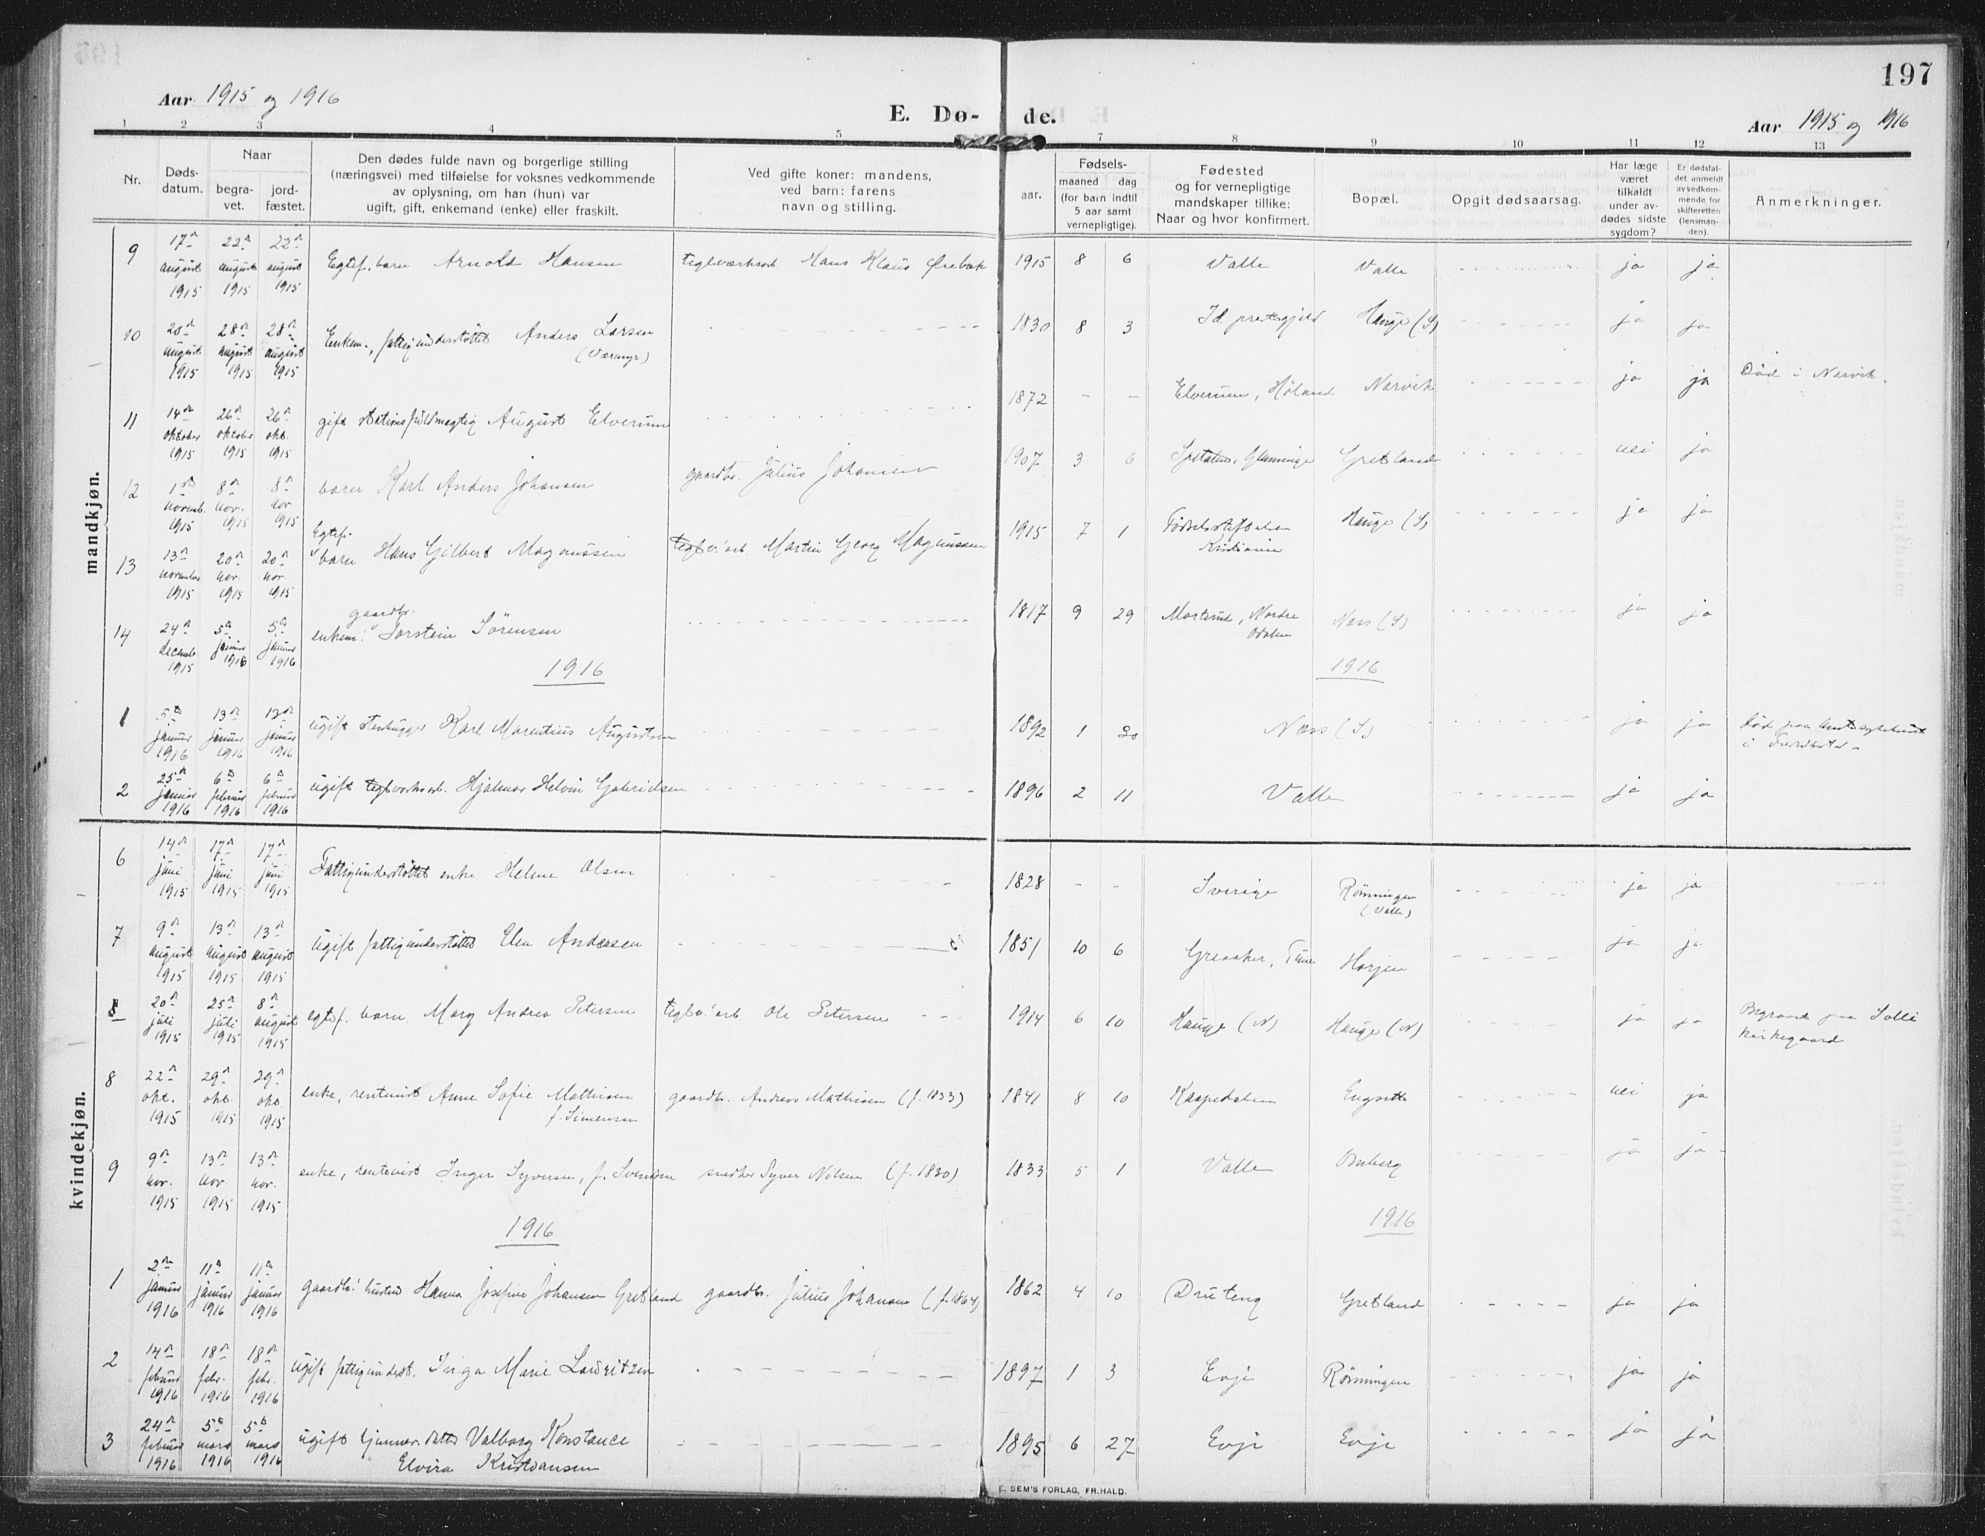 Aar 1915 og 1916
E. Dø-
de.
197
Aar 1915 og 1916
1 2 3 4 5 7 8 9 10 11 12 13
Nr.
Døds-
datum.
Naar
begra-
vet.
jord-
fæstet.
Den dødes fulde navn og borgerlige stilling
(næringsvei) med tilføielse for voksnes vedkommende
av oplysning, om han (hun) var
ugift, gift, enkemand (enke) eller fraskilt.
Ved gifte koner: mandens,
ved barn: farens
navn og stilling.
Fødsels-
aar.
maaned dag
(for barn indtil
5 aar samt
vernepligtige).
Fødested
og for vernepligtige
mandskaper tillike:
Naar og hvor konfirmert.
Bopæl.
Opgit dødsaarsag.
Har læge
været
tilkaldt
under av-
dødes sidste
sygdom?
Er dødsfal-
det anmeldt
av vedkom-
mende for
skifteretten
(lensman-
den).
Anmerkninger.
mandkjøn.
9 17de august 1915 22de august 1915 22de august 1915 Egtef. barn Arnold Hansen teglverksarb. Hans Klaus Ørebæk 1915 8 6 Valle Valle ja ja
10 20de august 1915 28de august 1915 28de august 1915 Enkem., fattigunderstøttet Anders Larsen 1830 8 3 Id prestegjeld Hauge (S) ja ja
11 14de oktober 1915 26de oktober 1915 26de okt. 1915 gift stationsfuldmægtig August Elverum 1872 - - Elverum, Høland Narvik ja ja Død i Narvik.
12 1ste novemb. 1915 8de nov. 1915 8de nov 1915 barn Karl Anders Johansen gaardbr. Julius Johansen 1907 3 6 Glemminge Gretland nei ja
13 13de november 1915 20de nov. 1915 20de nov. 1915 Egtef. barn Hans Gilbert Magnussen teglv. arb. Martin Georg Magnussen 1915 7 1 Fødselsstiftelsen Kristiania Hauge (S) ja ja
14 24de decemb. 1915 5te januar 1916 5te januar 1916 enkem. gaardbr. Torstein Sørensen 1817 9 29 Mostrud, Nordre Odalen Næss (S) ja ja
1916
1916
1 5te januar 1916 13de januar 1916 13de januar 1916 ugift stenhugger Karl Marentius Augustsen 1892 1 30 Næss (S) ja ja Død paa Amtssykehuset
i Fredrikstad.
2 25de januar 1916 6te februar 1916 6te februar 1916 ugift teglverksarb. Hjalmar Helvin Gabrielsen 1896 2 11 Valle ja ja
kvindekjøn.
6 14de juni 1915 17de juni 1915 17de juni 1915 Fattigunderstøttet enke Helene Olsen 1828 - - Sverige Rønningen
(Valle) ja ja
7 9de august 1915 13de august 1915 13de august 1915 ugift fattigunderstøttet Elen Andersen 1851 10 6 Greaaker, Tune Horjen ja ja
8 20de juli 1915 25de juli 1915 8de august 1915 egtef. barn Mary Andrea Petersen teglv. arb Ole Petersen 1914 6 10 Hauge (N) Hauge (N) ja ja Begravet paa Solli
kirkegaard
8 22de okt. 1915 29de okt 1915 29de okt. 1915 enke, rentenist Anne Sofie Mathisen
f. Simensen gaardbr. Andreas Mathisen (f. 1833) 1841 8 10 Kaspedalen Engsett nei ja
9 9de nov. 1915 13de nov. 1915 13de nov. 1915 enke, rentenist Inger Syversen, f. Svendsen snedker Syver Nilsen (f. 1830) 1833 5 1 Valle Omberg ja ja
1916
1916
1 2den januar 1916 11te januar 1916 11te januar 1916 gaardbr. hustru Hanna Josefine Johansen Gretland gaardbr. Julius Johansen (f. 1864) 1862 4 10 Druteng Gretland ja ja
2 14de februar 1916 18de febr. 1916 18de febr. 1916 ugift fattigunderst. Inga Marie Lauritzen 1897 1 3 Evje Rønningen ja ja
3 24de februar 1916 5te mars 1916 5te mars 1916 ugift datter Valborg Konstance
Elvira Kristiansen 1895 6 27 Evje Evje ja ja
E. SEM'S FORLAG, FR.HALD.